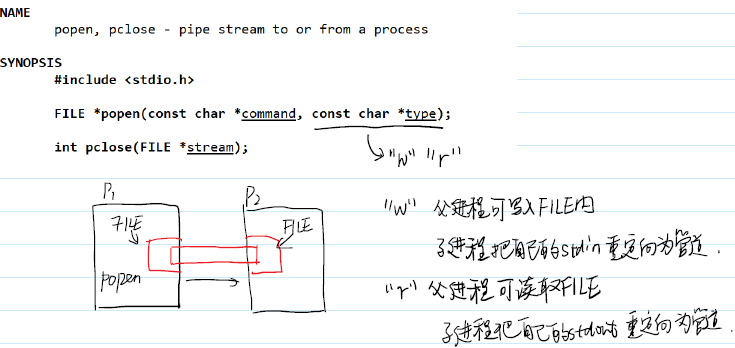 NAME
popen, pclose - pipe stream to or from a process
SYNOPSIS
#include <stdio.h>
FILE *popen(const char *command, const char *type);
int pclose(FILE *stream);
"w" "r"
P1
P2
FILE
FILE
popen
"w" 父进程可写入FILE内
子进程把自己的stdin重定向为管道.
"r" 父进程可读取FILE
子进程把自己的stdout重定向为管道.